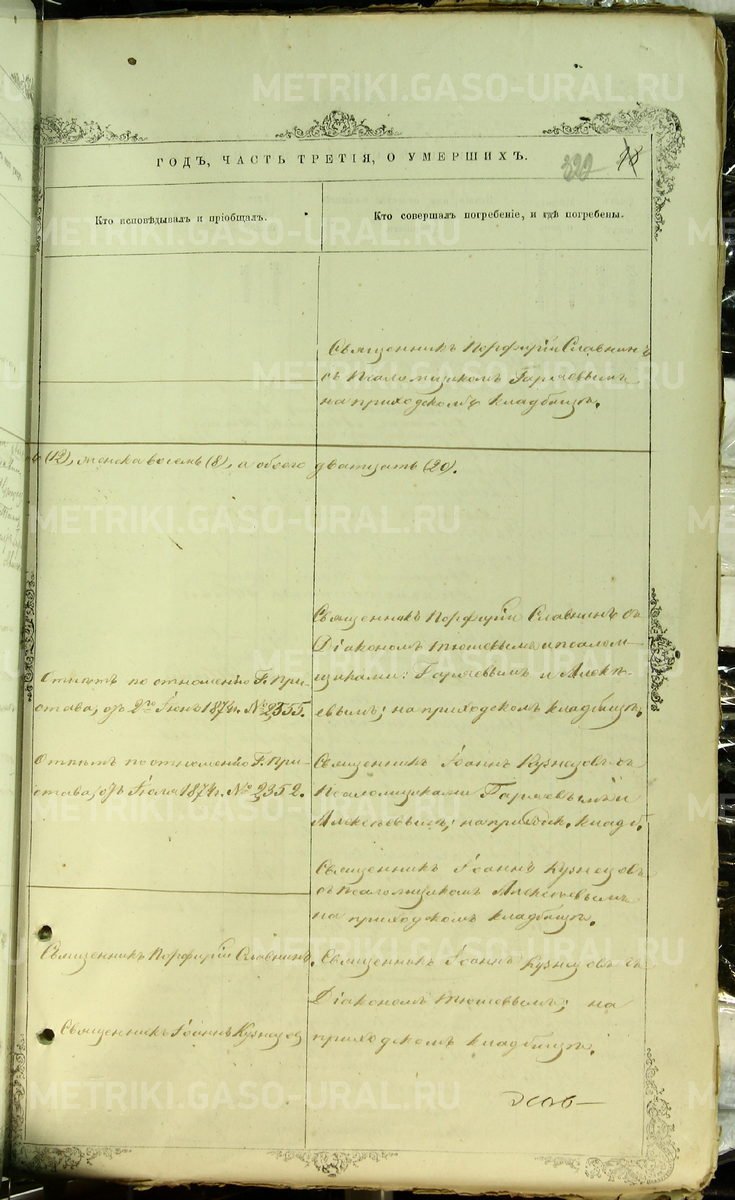 METRIKI.GASO-URAL.RU
ГОДЪ, ЧАСТЬ ТРЕТІЯ, О УМЕРШИХЪ.
329
Кто исповѣдывалъ и пріобщалъ.
Кто совершалъ погребеніе, и гдѣ погребены.
Священникъ Порфирій Славнинъ
съ Псаломщикомъ Гаряевымъ
на приходскомъ кладбищѣ.
(12), женска восемь (8), а обоего дватцать (20).
Священникъ Порфирій Славнинъ съ
Діакономъ Тюшевымъ и псалом-
щиками: Гаряевымъ и Алексѣ-
евымъ; на приходскомъ кладбищѣ.
Отпѣтъ по отношенію Г. При-
става, отъ 2го 1874 г. № 2355.
Священникъ Іоаннъ Кузнецовъ съ
Псаломщиками Гаряевымъ и
Алексѣевымъ; на приходск. кладб.
Отпѣтъ по отношенію Г. При-
става, отъ Іюля 1874 г. № 2352.
Священникъ Іоаннъ Кузнецовъ
съ псаломщикомъ Алексѣевымъ
на приходскомъ кладбищѣ.
Священникъ Порфирій Славнинъ.
Священникъ Іоаннъ Кузнецовъ съ
Діакономъ Тюшевымъ; на
приходскомъ кладбищѣ.
Священникъ Іоаннъ Кузнецов